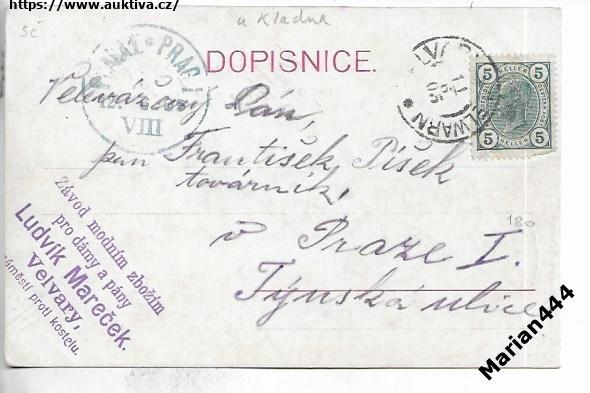 https://www.auktiva.cz/
u Kladna
sč
DOPISNICE.
PRAG
VIII
VELWARN
5 5
HELLER HELLER
5 5
Velevážený Pán,
pan František Píšek
továrník,
v Praze I.
Týnská ulice
180
Závod modním zbožím
pro dámy a pány
Ludvík Mareček.
Velvary,
náměstí proti kostelu.
Marian444